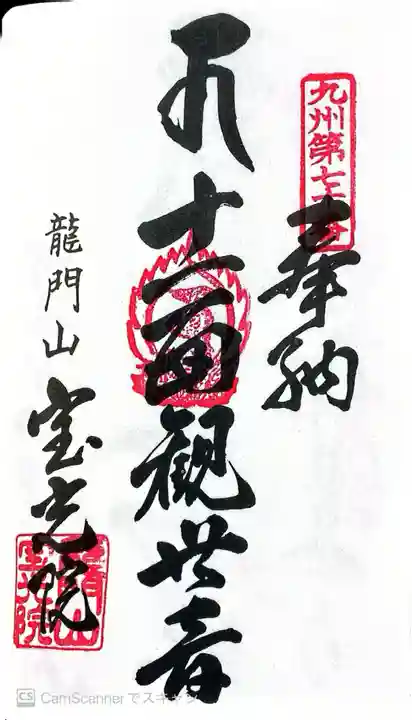 九州第七
奉納
十一面観世音
龍門山 宝光院
CamScannerでスキャン